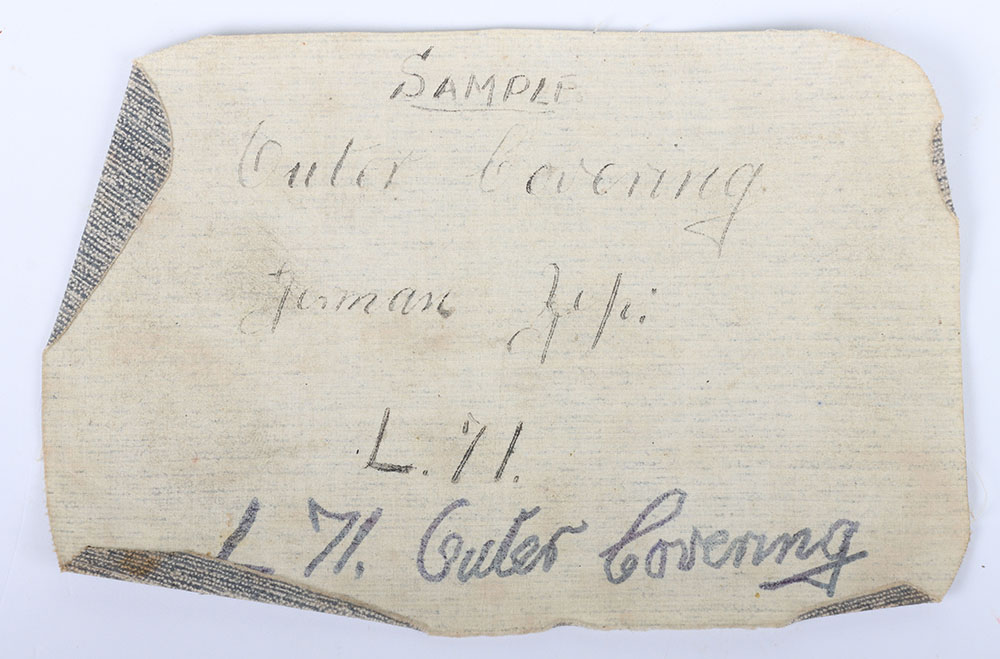 SAMPLE
Outer Covering
German Zep:
L. 71.
L 71. Outer Covering